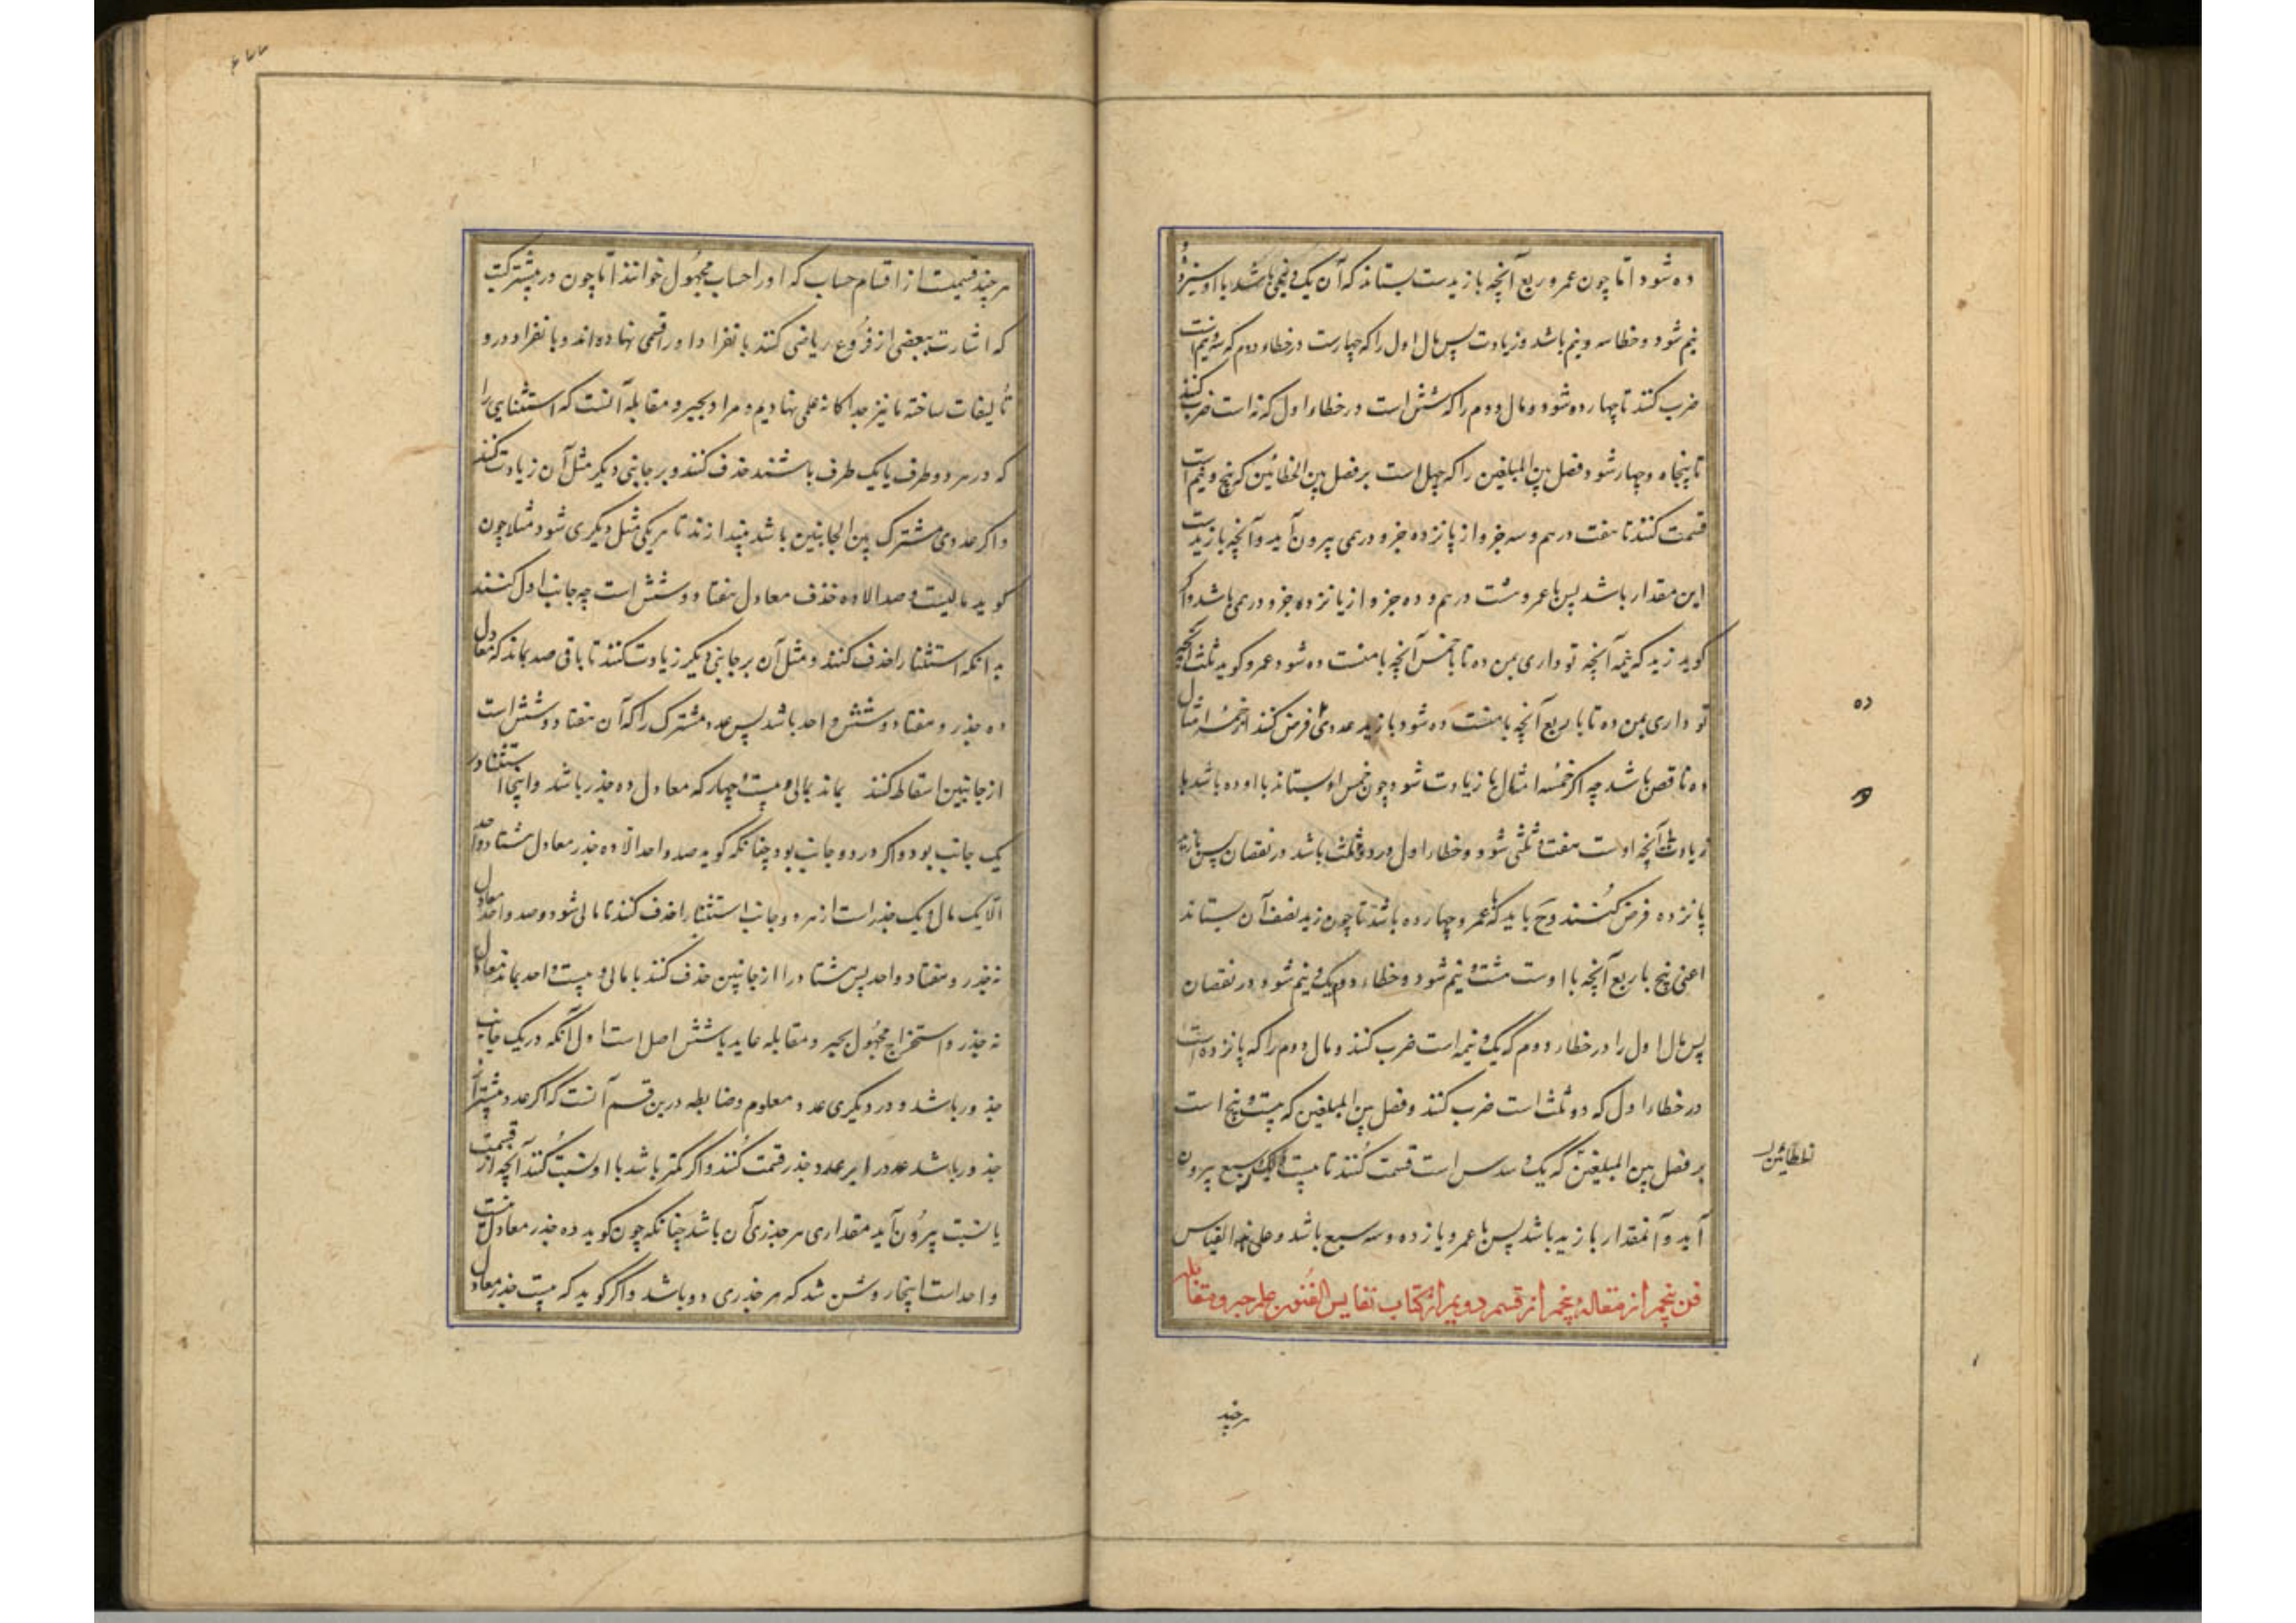 ده شود اما چون عمرو ربع آنچه با زیدست بستاند که آن یک و نیمی باشد با او سیزده و
نیم شود و خطا سه و نیم باشد در زیادت پس مال اول را که چهارست در خطاء دوم که سه و نیم است
ضرب کنند تا چهارده شود و مال دوم را که شش است در خطاء اول که نه است ضرب کنند
تا پنجاه و چهار شود و فضل بین المبلغین را که چهل است بر فضل بین الخطائین که پنج و نیم است
قسمت کنند تا هفت درهم و سه جزو از یانزده جزو درمی بیرون آید و آنچه با زیدست
این مقدار باشد پس با عمرو هشت درهم و ده جزو از یانزده جزو درمی باشد و اگر
کوید زید که نیمه آنچه تو داری بمن ده تا با خمس آنچه با منست ده شود و عمرو کوید ثلث آنچه
تو داری بمن ده تا با ربع آنچه با منست ده شود با زید عددی فرض کنند از خمسه امثال
ده ناقص باشد چه اکر خمسه امثال یا زیادت شود چون خمس او بستاند با او ده باشد یا
زیادت آنچه اوست هفت و ثلثی شود و خطاء اول دو و ثلث باشد در نقصان پس با زید
پانزده فرض کنند و ح باید که با عمرو چهارده باشد تا چون زید نصف آن بستاند
اعنی پنج با ربع آنچه با اوست هشت و نیم شود و خطاء دوم یک و نیم شود در نقصان
پس مال اول را در خطاء دوم که یک و نیمه است ضرب کنند و مال دوم را که پانزده است
در خطاء اول که دو ثلث است ضرب کنند و فضل بین المبلغین که بیست و پنج است
بر فضل بین المبلغین که یک و سدس است قسمت کنند تا بیست و یک و سبع بیرون
آید و آنمقدار با زید باشد پس با عمرو یازده و سه سبع باشد و علی هذا القیاس
فن پنجم از مقاله پنجم از قسم دویم از کتاب نفایس الفنون علم جبر و مقابله
ده
الخطائین
هرچند
هرچند قسمیست از اقسام حساب که او را حساب مجهول خوانند اما چون در بیشتر کتب
که اشارت ببعضی از فروع ریاضی کنند بانفراد او را قسمی نهاده‌اند و بانفراد درو
تألیفات ساخته ما نیز جداکانه علمی نهادیم و مراد بجبر و مقابله آنست که استثنایی را
که در هر دو طرف یا یک طرف باشند حذف کنند و بر جانبی دیکر مثل آن زیادت کنند
و اکر عددی مشترک بین الجانبین باشد بیندازند تا هر یکی مثل دیکری شود مثلا چون
کوید مالیست و صد الا ده حذف معادل هفتاد و شش است چه جانب اول کنند
به انکه استثنا را حذف کنند و مثل آن بر جانبی دیکر زیادت کنند تا باقی صد بماند که معادل
ده جذر و هفتاد و شش واحد باشد پس عدد مشترک را که آن هفتاد و شش است
از جانبین اسقاط کنند بماند مالی و بیست و چهار که معادل ده جذر باشد و اینجا استثنا در
یک جانب بود و اکر در دو جانب بود چنانکه کوید صد و احد الا ده جذر معادل هشتاد و احد
الا یک مال و یک جذر است از هر دو جانب استثنا را حذف کنند تا مالی شود و صد و احد معادل
نه جذر و هفتاد و احد پس هشتاد را از جانبین حذف کنند با مالی و بیست و احد بماند معادل
نه جذر و استخراج مجهول بجبر و مقابله عاید با شش اصل است اول آنکه در یک جانب
جذور باشد و در دیکری عدد معلوم و ضابطه درین قسم آنست که اکر عدد بیشتر از
جذور باشد عدد را بر عدد جذر قسمت کنند و اکر کمتر باشد با او نسبت کنند آنچه از قسمت
یا نسبت بیرون آید مقداری هر جذری آن باشد چنانکه چون کوید ده جذر معادل بیست
واحد است اینجا روشن شد که هر جذری دو باشد و اکر کوید که بیست جذر معادل